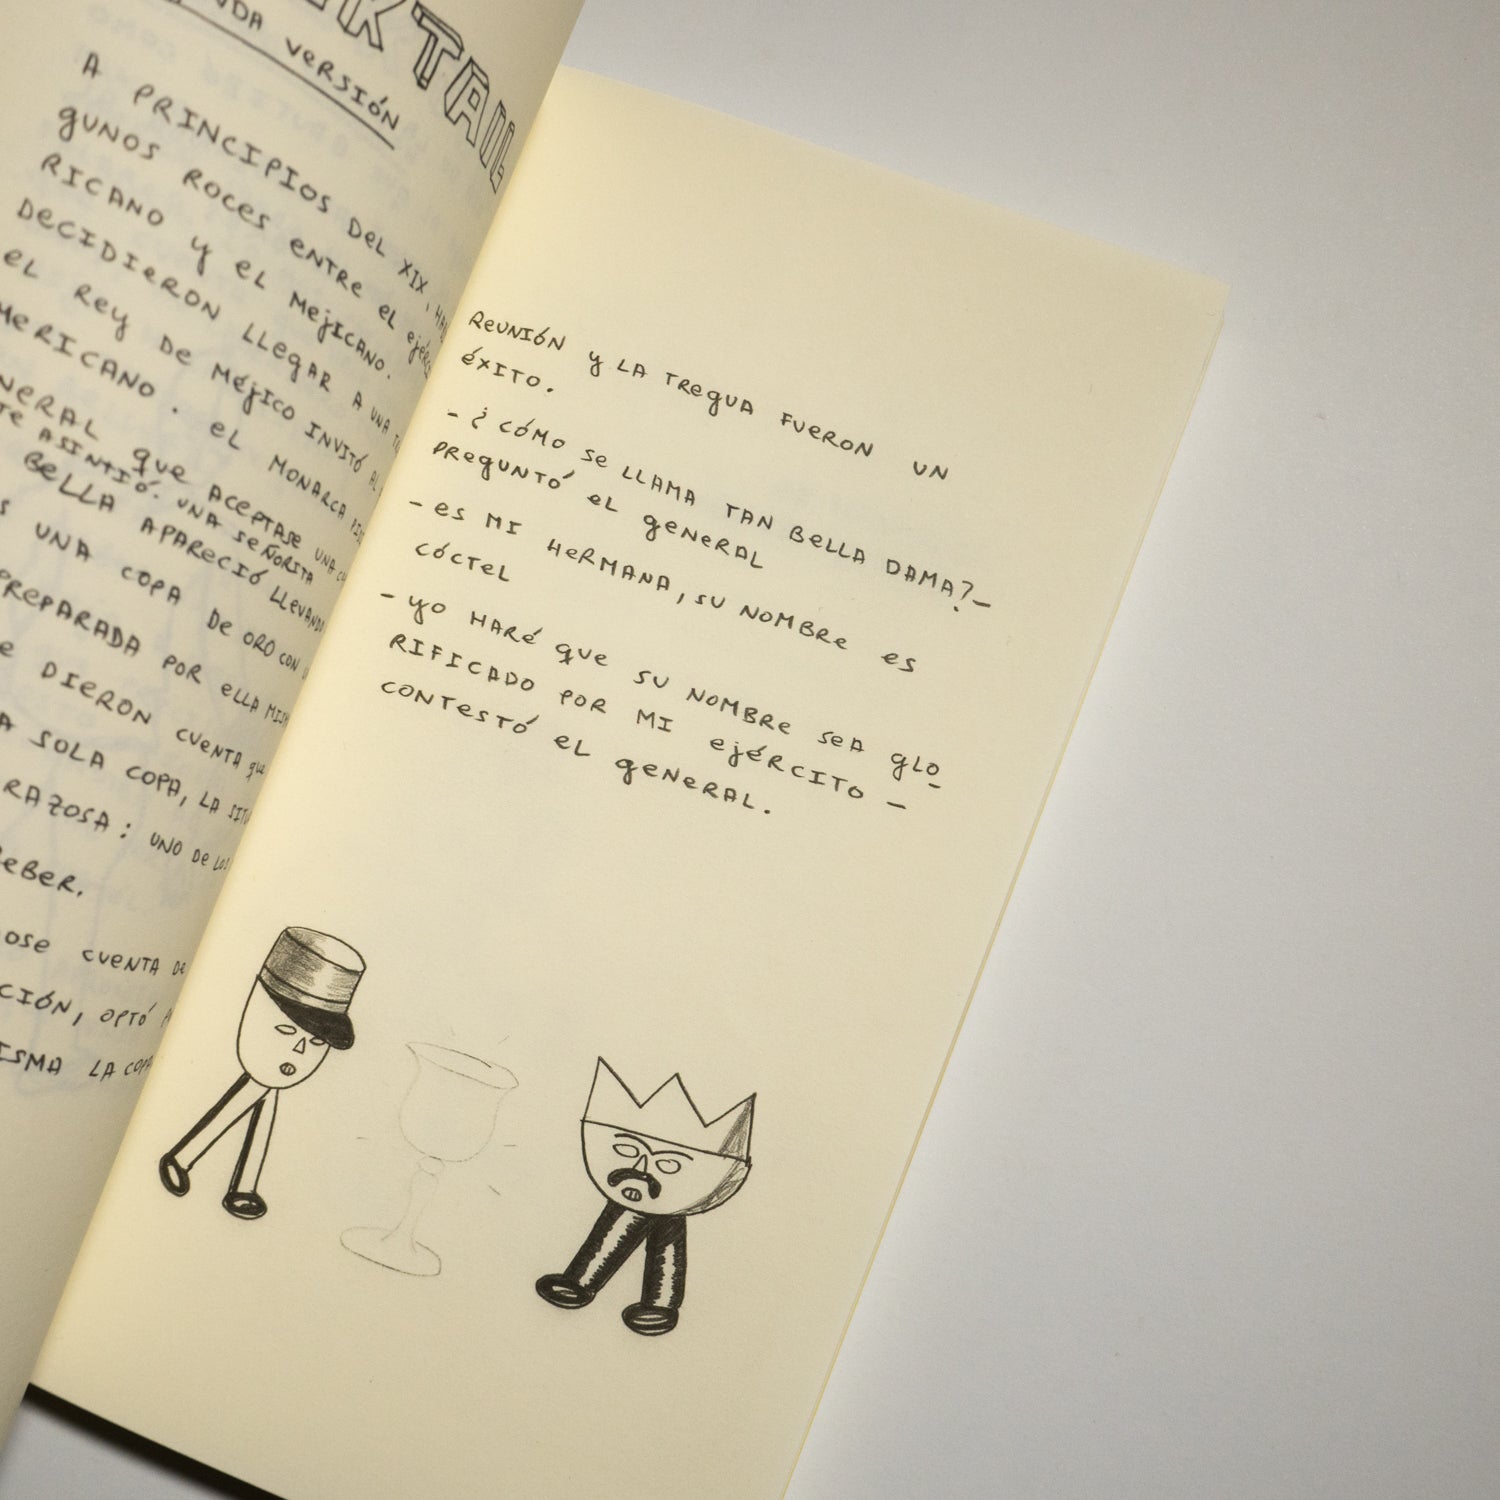 KTAIL
NDA VERSIÓN
A PRINCIPIOS DEL XIX,
GUNOS ROCES ENTRE EL
RICANO Y EL MEJICANO.
DECIDIERON LLEGAR A UNA
EL REY DE MÉJICO INVITÓ AL
MERICANO. EL MONARCA
NERAL QUE ACEPTASE UNA
TE ASINTIÓ. UNA SEÑORITA
BELLA APARECIÓ LLEVANDO
UNA COPA DE ORO CON
PREPARADA POR ELLA
E DIERON CUENTA QUE
A SOLA COPA, LA
RAZOSA: UNO DE LOS
BEBER.
OSE CUENTA DE
CIÓN, OPTÓ
ISMA LA COPA
REUNIÓN Y LA TREGUA FUERON UN
ÉXITO.
- ¿CÓMO SE LLAMA TAN BELLA DAMA?-
PREGUNTÓ EL GENERAL
- ES MI HERMANA, SU NOMBRE ES
CÓCTEL
- YO HARÉ QUE SU NOMBRE SEA GLO-
RIFICADO POR MI EJÉRCITO -
CONTESTÓ EL GENERAL.